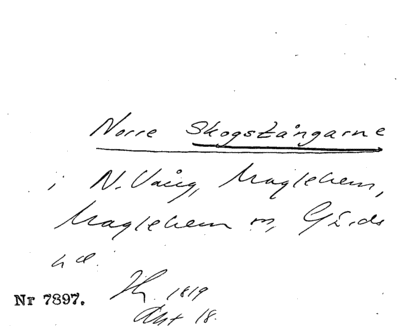 Norre Skogstångarne
i N. Vång, Maglehem,
Maglehem sn, Gärds
hd.
Nr 7897. 1819
Akt 18.